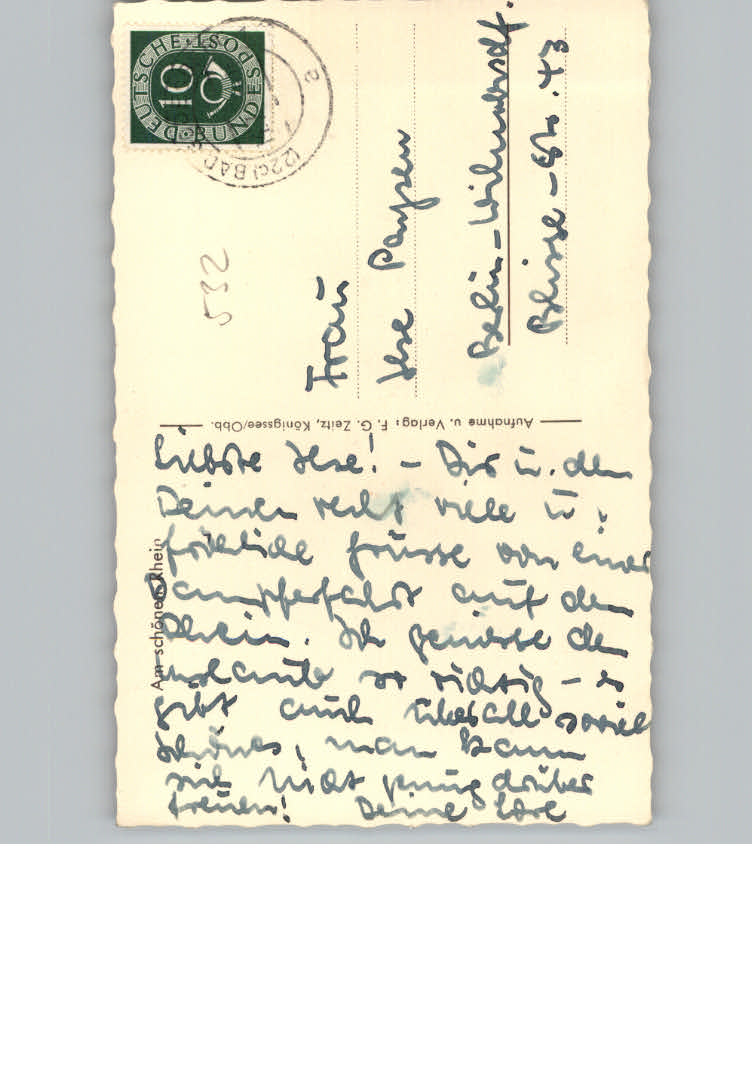 DEUTSCHE BUNDESPOST
10
(22c) BAD
a
532
Frau
Ilse Paysen
Berlin-Wilmersdf.
Blisse-Str. 43
Aufnahme u. Verlag: F. G. Zeitz, Königssee/Obb.
Am schönen Rhein
Liebste Ilse! - Dir u. den
Deinen recht viele u.
fröhliche Grüsse von einer
Dampferfahrt auf dem
Rhein. Ich geniesse den
Urlaub so richtig - es
gibt auch überall soviel
Schönes, man kann
sich nicht genug drüber
freuen! Deine Lore